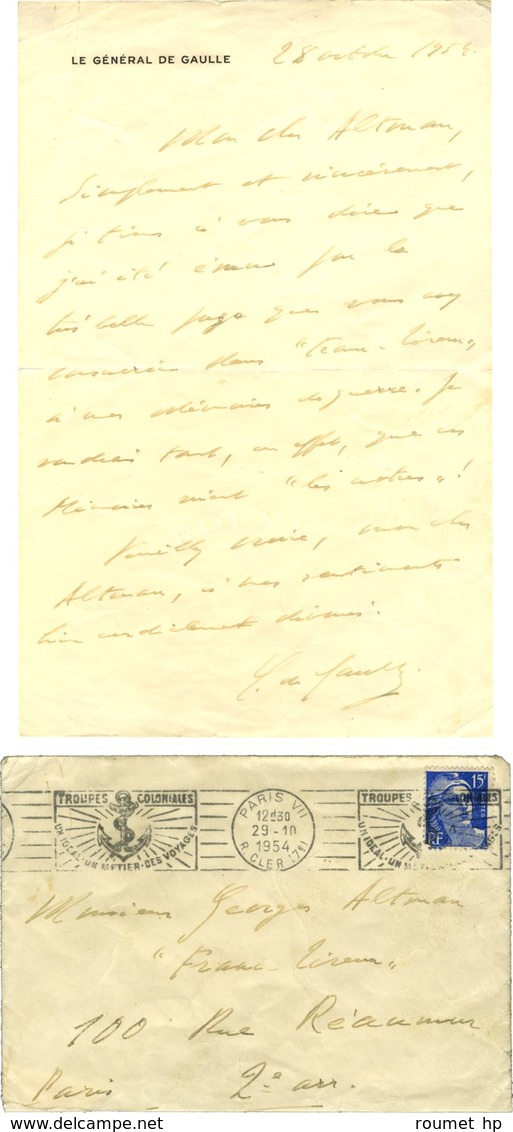 LE GÉNÉRAL DE GAULLE
28 octobre 1954.
Mon cher Altman,
Simplement et sincèrement,
je tiens à vous dire que
j'ai été ému par la
très belle page que vous avez
consacrée dans "Franc-Tireur"
à mes Mémoires de guerre. Je
voudrais tant, en effet, que ces
Mémoires soient "les nôtres"!
Veuillez croire, mon cher
Altman, à mes sentiments
bien cordialement dévoués.
C. de Gaulle
TROUPES COLONIALES
UN IDÉAL-UN MÉTIER-DES VOYAGES
PARIS VII
12H30
29-10
1954
R. CLER (7E)
TROUPES
UN IDÉAL-UN MÉTIER
15F
RF
Monsieur Georges Altman
"Franc-Tireur"
100 Rue Réaumur
Paris 2e arr.
roumet hp